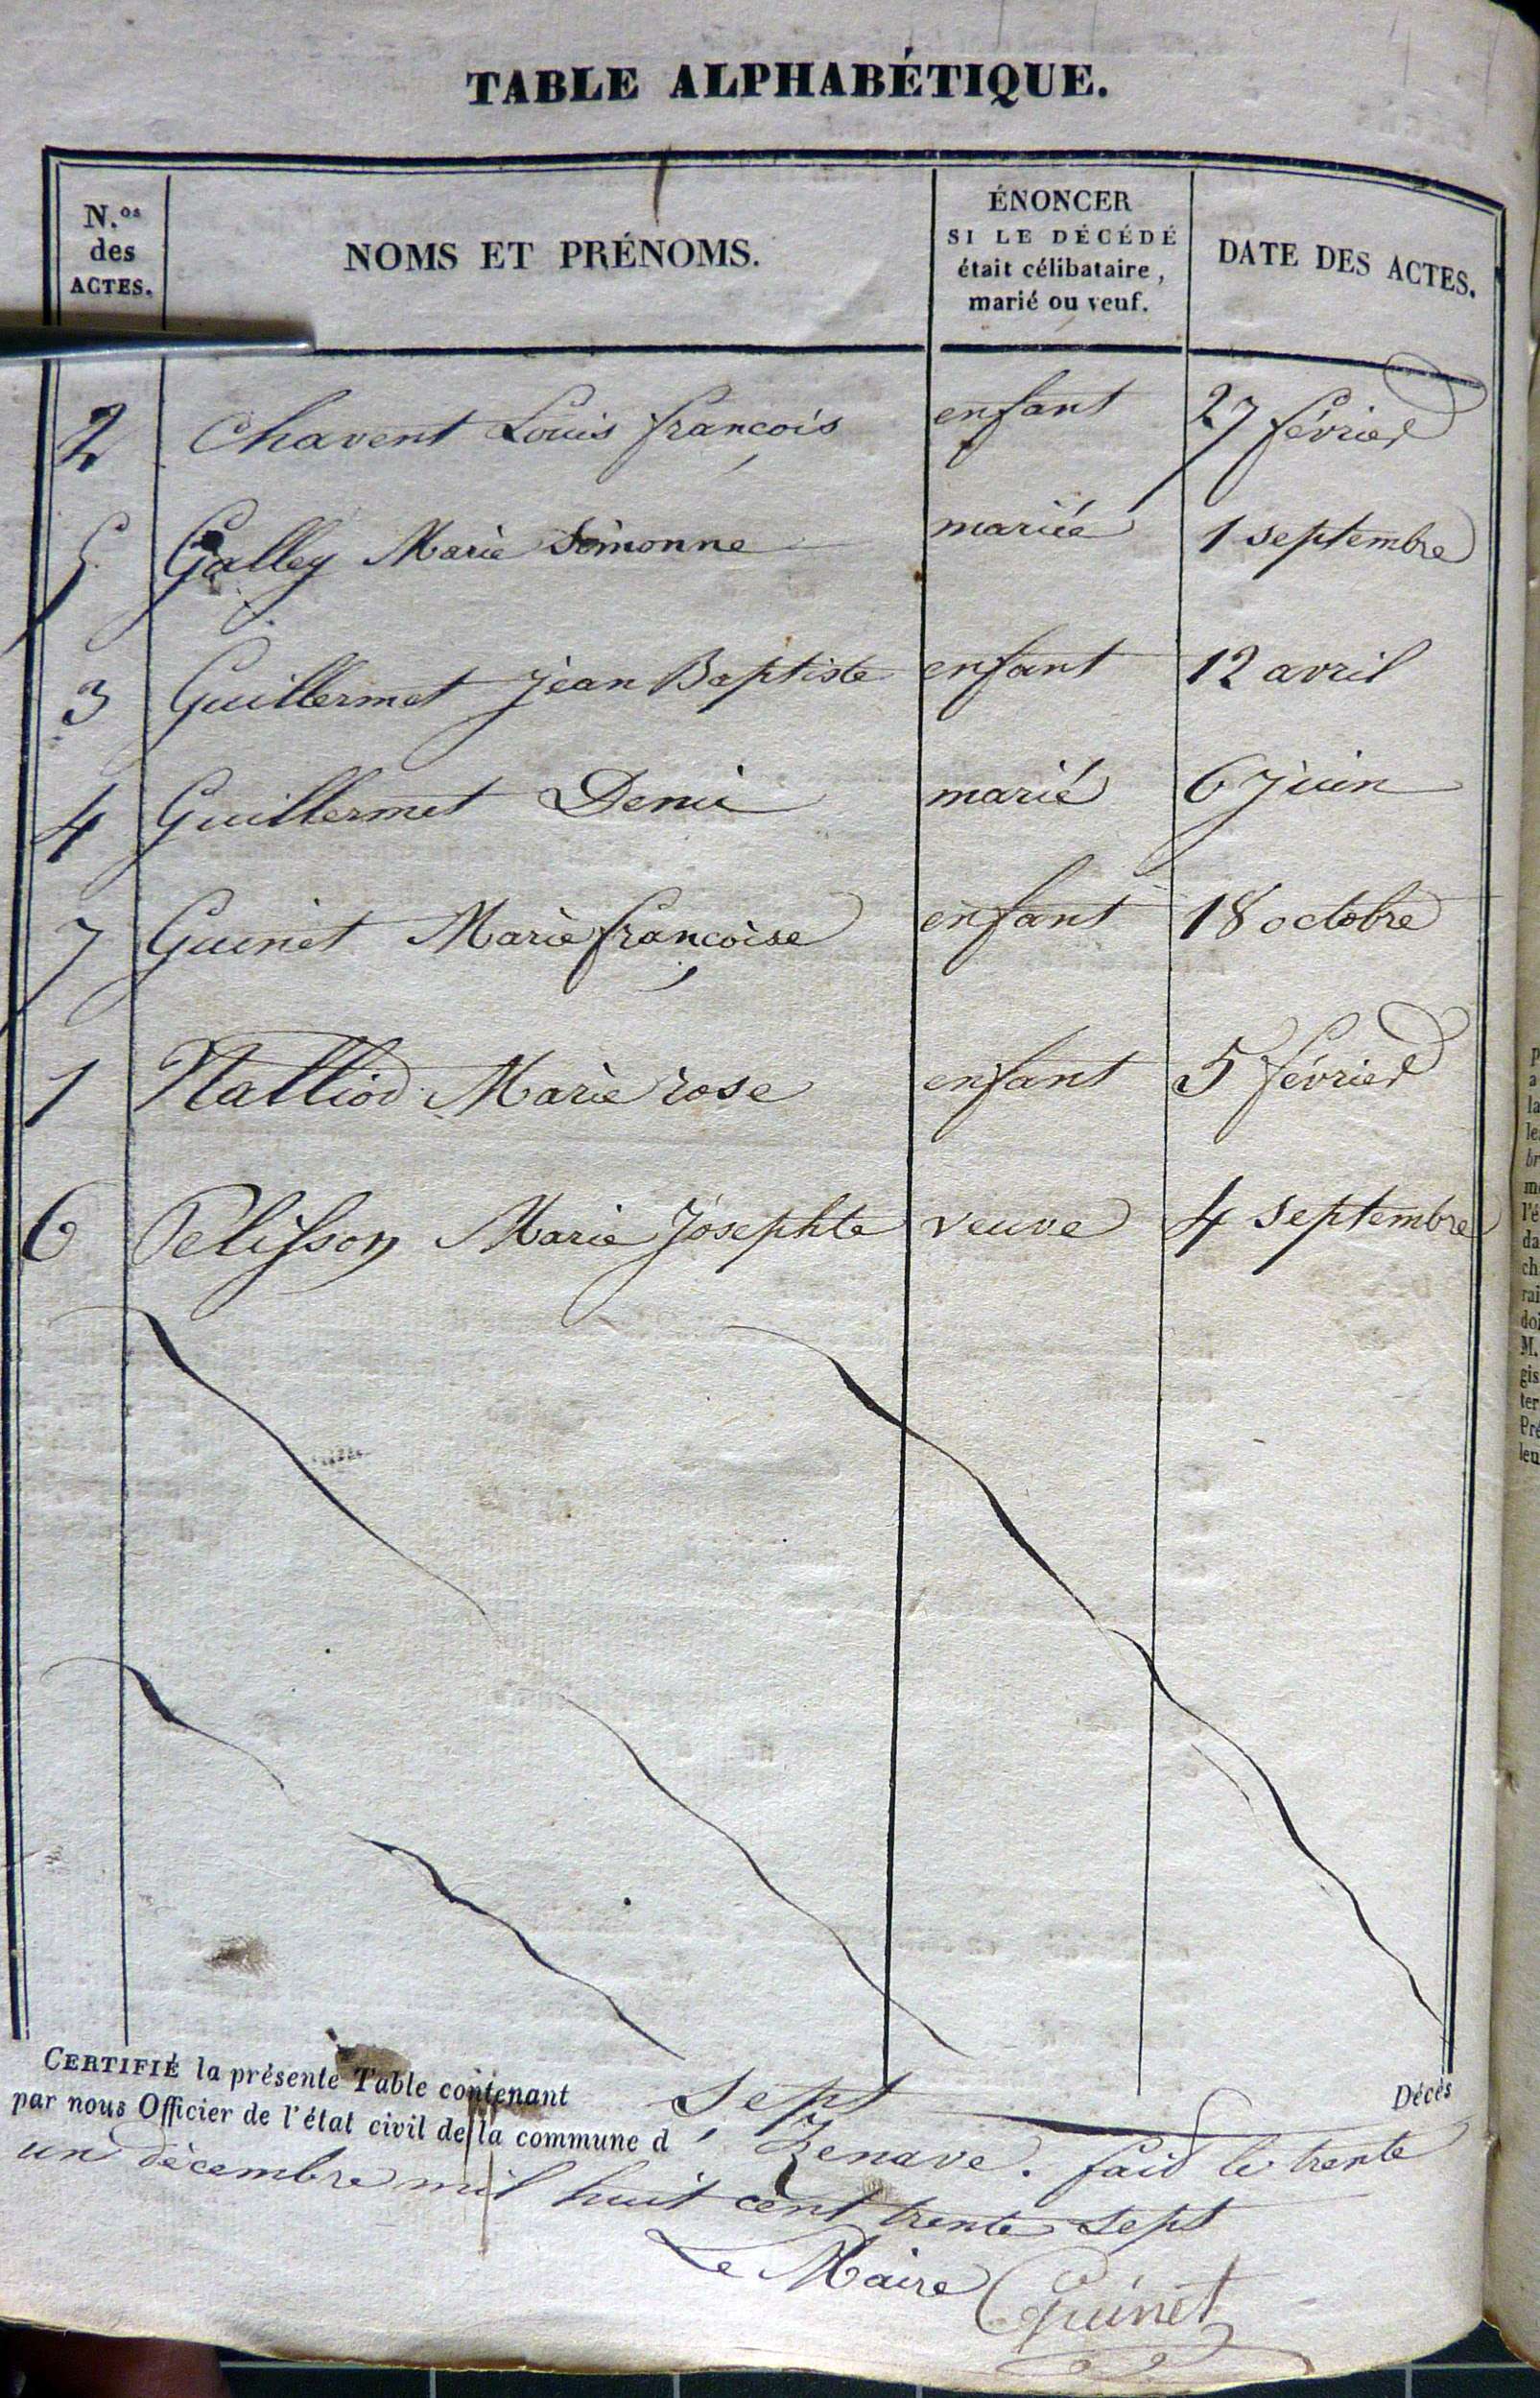 TABLE ALPHABÉTIQUE.
N.os des ACTES. NOMS ET PRÉNOMS. ÉNONCER SI LE DÉCÉDÉ était célibataire, marié ou veuf. DATE DES ACTES.
2 Chavent Louis françois enfant 27 févried
5 Galley Marie Simonne mariée 1 septembre
3 Guillermet jean Baptiste enfant 12 avril
4 Guillermet Denis marié 6 juin
7 Guinet Marie françoise enfant 18 octobre
1 Nalliod Marie rose enfant 5 févried
6 Pelisson Marie Josephte veuve 4 septembre
CERTIFIÉ la présente Table contenant sept Décès
par nous Officier de l'état civil de la commune d fait le trente
un décembre mil huit cent trente sept
Le Maire Guinet